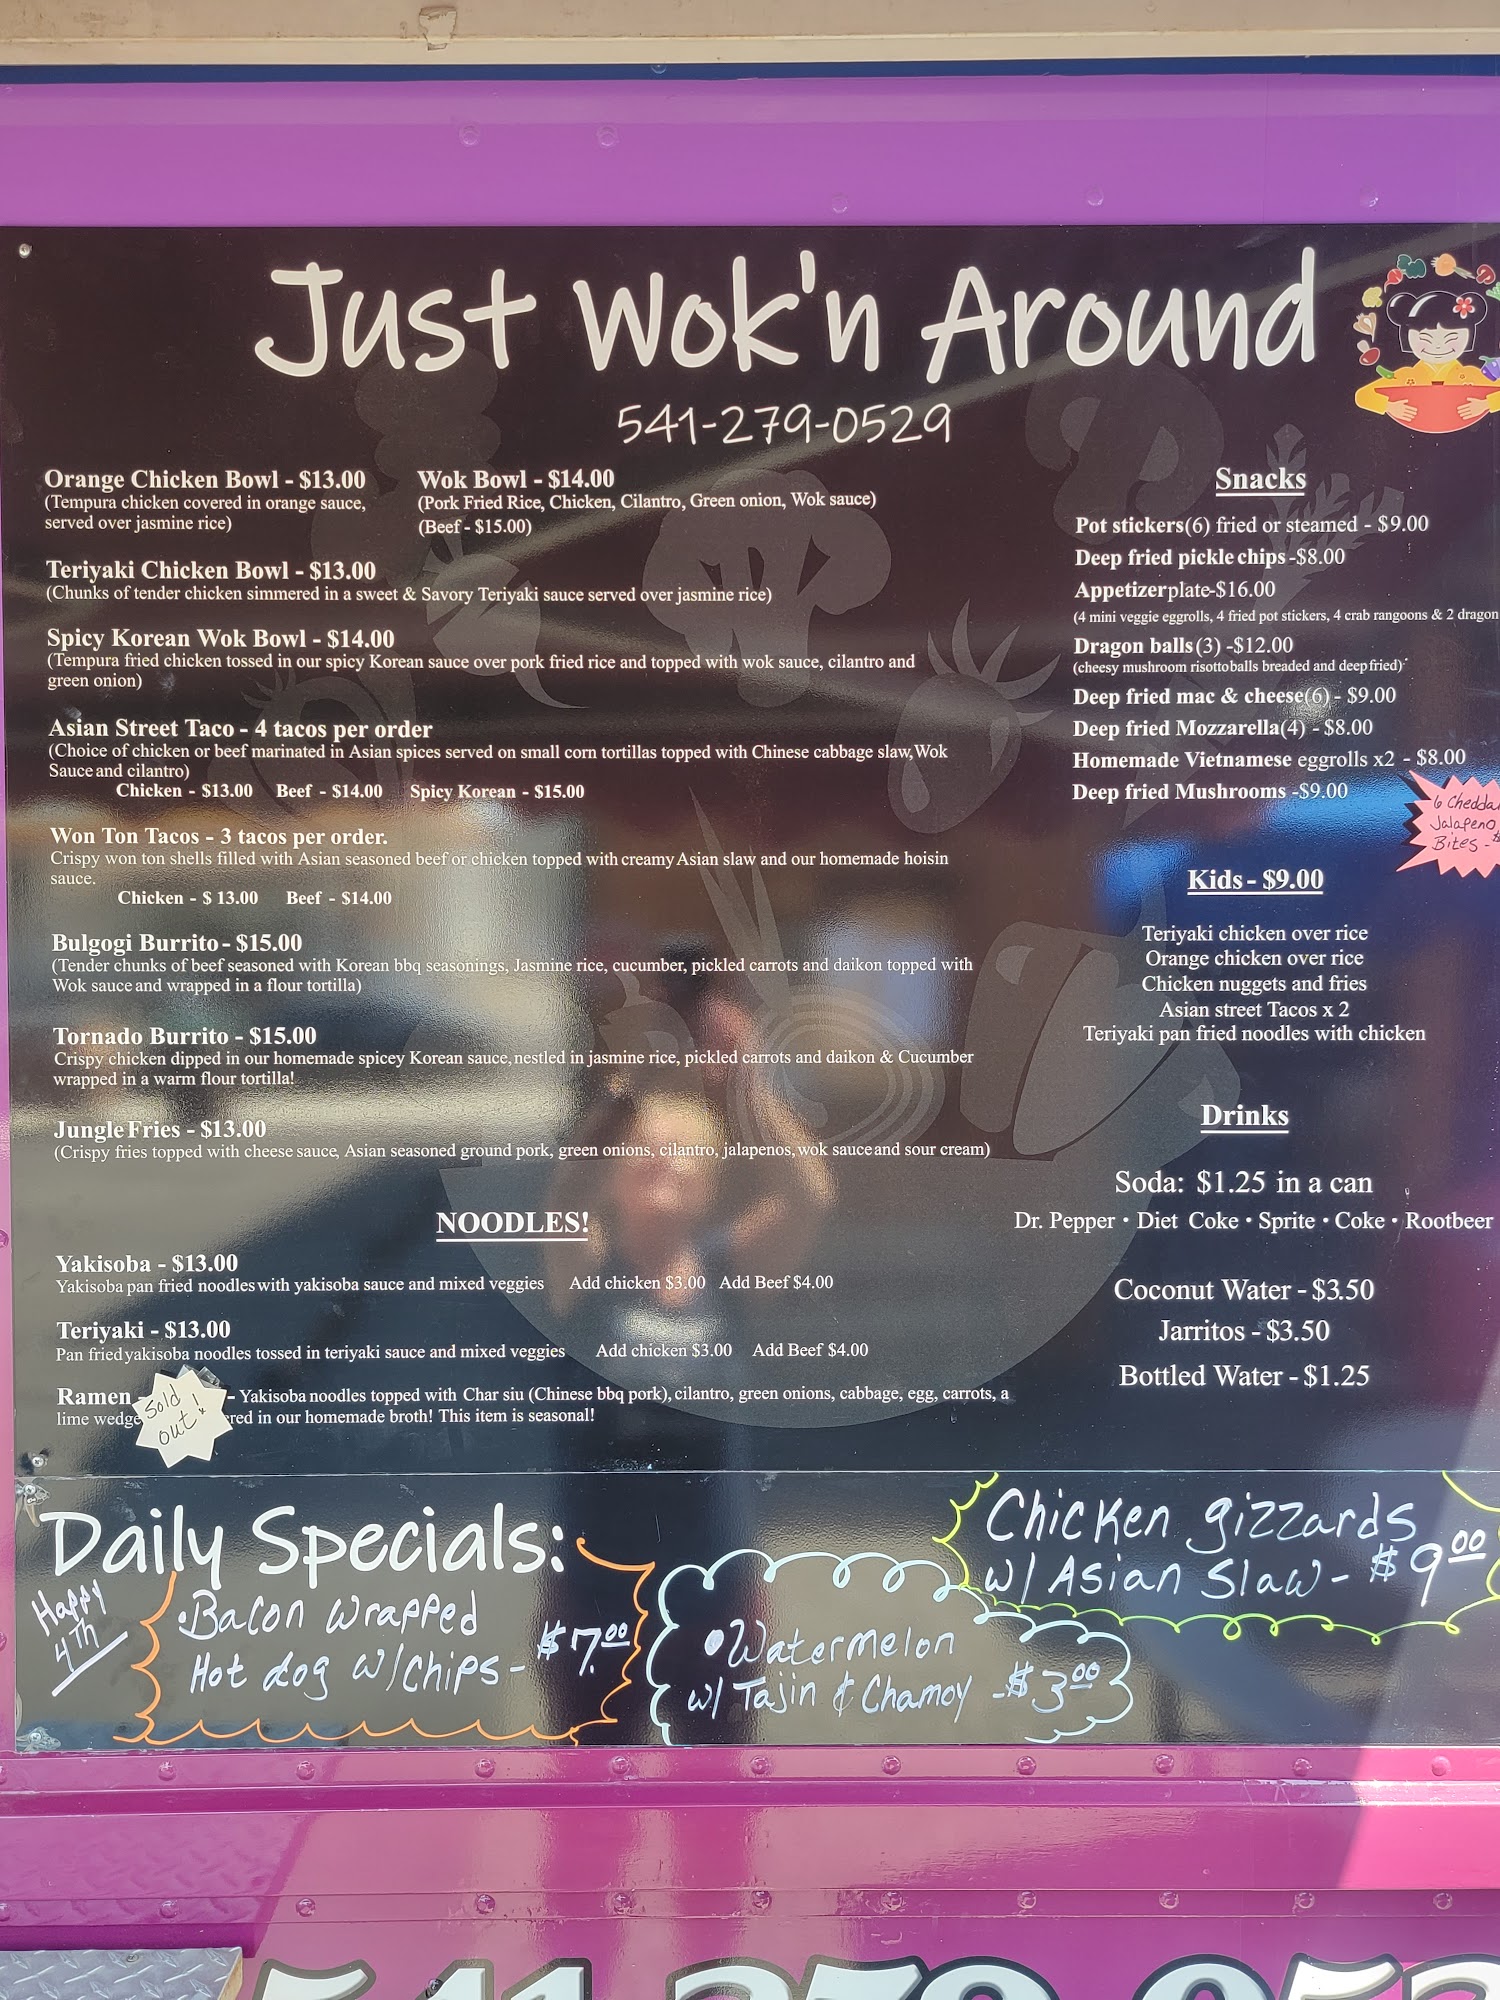 Just Wok'n Around
541-279-0529
Orange Chicken Bowl - $13.00
(Tempura chicken covered in orange sauce,
served over jasmine rice)
Wok Bowl - $14.00
(Pork Fried Rice, Chicken, Cilantro, Green onion, Wok sauce)
(Beef - $15.00)
Teriyaki Chicken Bowl - $13.00
(Chunks of tender chicken simmered in a sweet & Savory Teriyaki sauce served over jasmine rice)
Spicy Korean Wok Bowl - $14.00
(Tempura fried chicken tossed in our spicy Korean sauce over pork fried rice and topped with wok sauce, cilantro and
green onion)
Asian Street Taco - 4 tacos per order
(Choice of chicken or beef marinated in Asian spices served on small corn tortillas topped with Chinese cabbage slaw, Wok
Sauce and cilantro)
Chicken - $13.00 Beef - $14.00 Spicy Korean - $15.00
Won Ton Tacos - 3 tacos per order.
Crispy won ton shells filled with Asian seasoned beef or chicken topped with creamy Asian slaw and our homemade hoisin
sauce.
Chicken - $ 13.00 Beef - $14.00
Bulgogi Burrito - $15.00
(Tender chunks of beef seasoned with Korean bbq seasonings, Jasmine rice, cucumber, pickled carrots and daikon topped with
Wok sauce and wrapped in a flour tortilla)
Tornado Burrito - $15.00
Crispy chicken dipped in our homemade spicey Korean sauce, nestled in jasmine rice, pickled carrots and daikon & Cucumber
wrapped in a warm flour tortilla!
Jungle Fries - $13.00
(Crispy fries topped with cheese sauce, Asian seasoned ground pork, green onions, cilantro, jalapenos, wok sauce and sour cream)
NOODLES!
Yakisoba - $13.00
Yakisoba pan fried noodles with yakisoba sauce and mixed veggies Add chicken $3.00 Add Beef $4.00
Teriyaki - $13.00
Pan fried yakisoba noodles tossed in teriyaki sauce and mixed veggies Add chicken $3.00 Add Beef $4.00
Ramen - - Yakisoba noodles topped with Char siu (Chinese bbq pork), cilantro, green onions, cabbage, egg, carrots, a
lime wedge red in our homemade broth! This item is seasonal!
Sold
out!
Snacks
Pot stickers(6) fried or steamed - $9.00
Deep fried pickle chips -$8.00
Appetizer plate-$16.00
(4 mini veggie eggrolls, 4 fried pot stickers, 4 crab rangoons & 2 dragon
Dragon balls (3) -$12.00
(cheesy mushroom risotto balls breaded and deep fried)
Deep fried mac & cheese(6) - $9.00
Deep fried Mozzarella(4) - $8.00
Homemade Vietnamese eggrolls x2 - $8.00
Deep fried Mushrooms -$9.00
6 Chedda
Jalapeno
Bites -
Kids - $9.00
Teriyaki chicken over rice
Orange chicken over rice
Chicken nuggets and fries
Asian street Tacos x 2
Teriyaki pan fried noodles with chicken
Drinks
Soda: $1.25 in a can
Dr. Pepper • Diet Coke • Sprite • Coke • Rootbeer
Coconut Water - $3.50
Jarritos - $3.50
Bottled Water - $1.25
Daily Specials:
Happy
4th
•Bacon wrapped
Hot dog w/chips - $7.00
•Watermelon
w/ Tajin & Chamoy - $3.00
Chicken gizzards
w/ Asian Slaw - $9.00